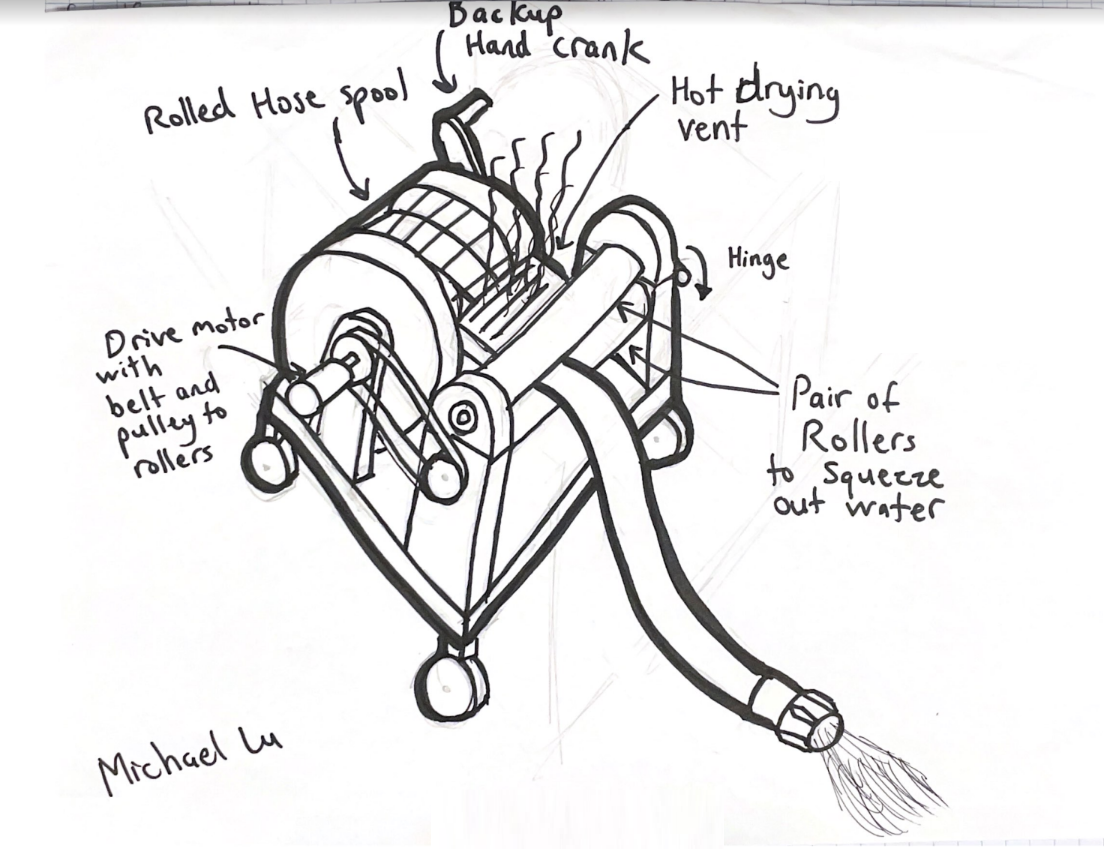 Backup
Hand crank
Rolled Hose spool
Hot drying
vent
Hinge
Drive motor
with
belt and
pulley to
rollers
Pair of
Rollers
to Squeeze
out water
Michael Lu